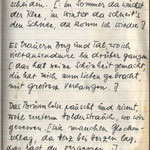 scheiden. [: im Sommer da wächst
der Klee, im Winter da schneit's
den Schnee, da komm ich wieder :]
Es trauern Berg und Tal, wo ich
vieltausendmal bin drüber gangen
[: das hat deine Schönheit gemacht
die hat mich zum Lieben gebracht
mit großem Verlangen. :]
Das Brünnlein rauscht und rinnt,
wohl unterm Holderstrauch, wo wir
gesessen, [: wie manchen Glocken-
schlag, da Herz bei Herzen lag,
das hast du vergessen.